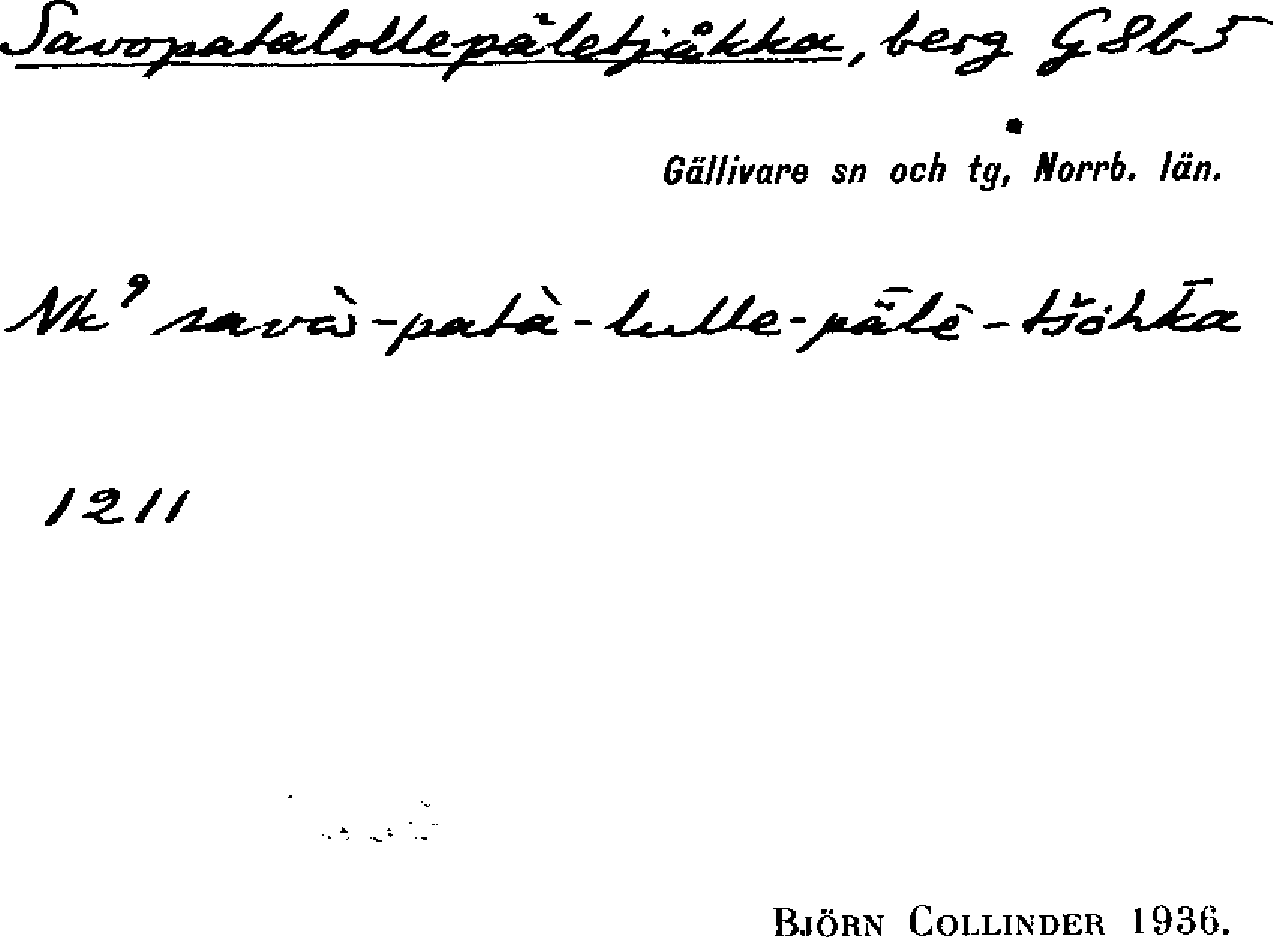 Savopatalollepäletjåkka, berg G8b5
Gällivare sn och tg, Norrb. län.
Nk⁹ savò̀-patà-lulle-pǟlē-tšŏhk̄a
1211
BJÖRN COLLINDER 1936.